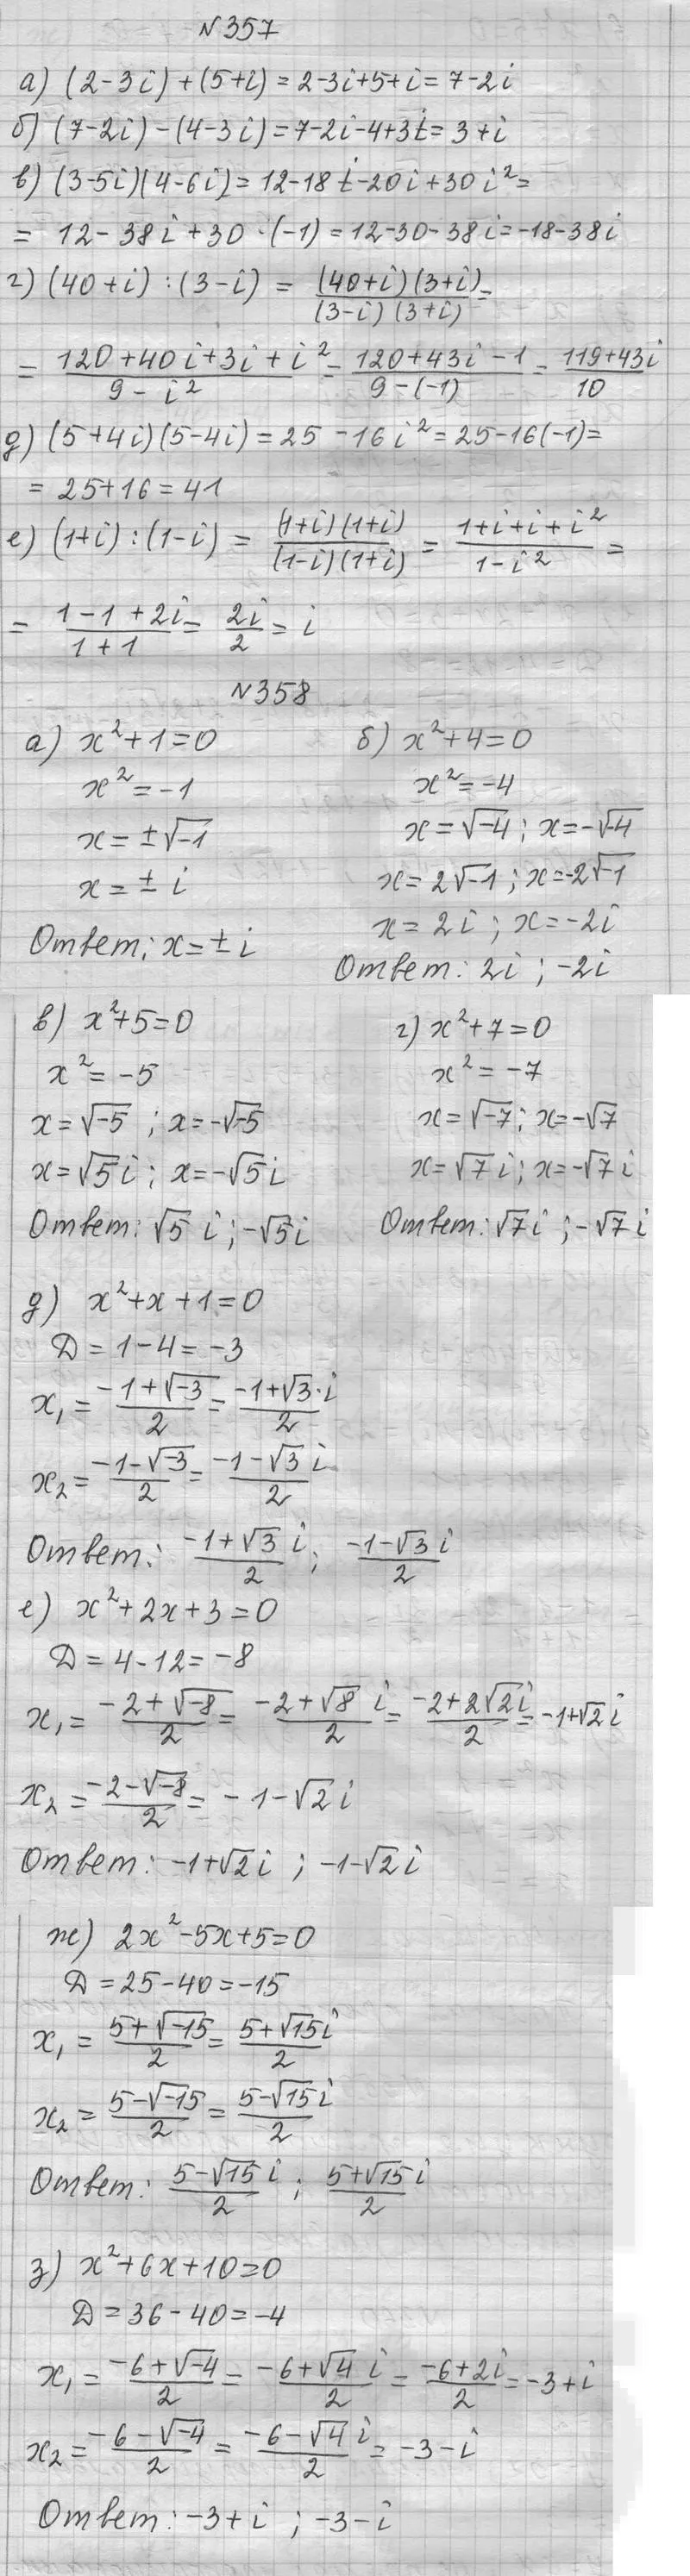 №357
а) (2-3i)+(5+i)=2-3i+5+i=7-2i
б) (7-2i)-(4-3i)=7-2i-4+3i=3+i
в) (3-5i)(4-6i)=12-18i-20i+30i²=
= 12-38i+30·(-1)=12-30-38i=-18-38i
г) (40+i):(3-i) = (40+i)(3+i)/(3-i)(3+i) =
= 120+40i+3i+i²/9-i² = 120+43i-1/9-(-1) = 119+43i/10
д) (5+4i)(5-4i)=25-16i²=25-16(-1)=
= 25+16=41
е) (1+i):(1-i) = (1+i)(1+i)/(1-i)(1+i) = 1+i+i+i²/1-i² =
= 1-1+2i/1+1 = 2i/2 = i
№358
а) x²+1=0
x²=-1
x=±√-1
x=± i
Ответ: x=± i
б) x²+4=0
x²=-4
x=√-4; x=-√-4
x=2√-1; x=-2√-1
x=2i; x=-2i
Ответ: 2i; -2i
в) x²+5=0
x²=-5
x=√-5; x=-√-5
x=√5i; x=-√5i
Ответ: √5 i; -√5i
г) x²+7=0
x²=-7
x=√-7; x=-√7
x=√7i; x=-√7i
Ответ: √7i; -√7i
д) x²+x+1=0
D=1-4=-3
x₁ = -1+√-3/2 = -1+√3·i/2
x₂ = -1-√-3/2 = -1-√3i/2
Ответ: -1+√3i/2; -1-√3i/2
е) x²+2x+3=0
D=4-12=-8
x₁ = -2+√-8/2 = -2+√8i/2 = -2+2√2i/2 = -1+√2i
x₂ = -2-√-8/2 = -1-√2i
Ответ: -1+√2i; -1-√2i
ж) 2x²-5x+5=0
D=25-40=-15
x₁ = 5+√-15/2 = 5+√15i/2
x₂ = 5-√-15/2 = 5-√15i/2
Ответ: 5-√15i/2; 5+√15i/2
з) x²+6x+10=0
D=36-40=-4
x₁ = -6+√-4/2 = -6+√4i/2 = -6+2i/2 = -3+i
x₂ = -6-√-4/2 = -6-√4i/2 = -3-i
Ответ: -3+i; -3-i